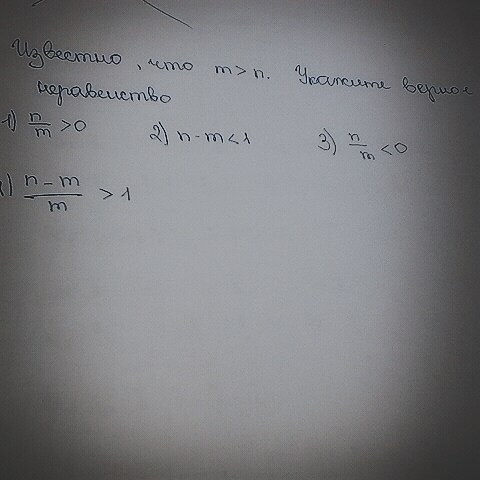 Известно, что m > n. Укажите верное
неравенство
1) n/m > 0 2) n - m < 1 3) n/m < 0
) n - m/m > 1